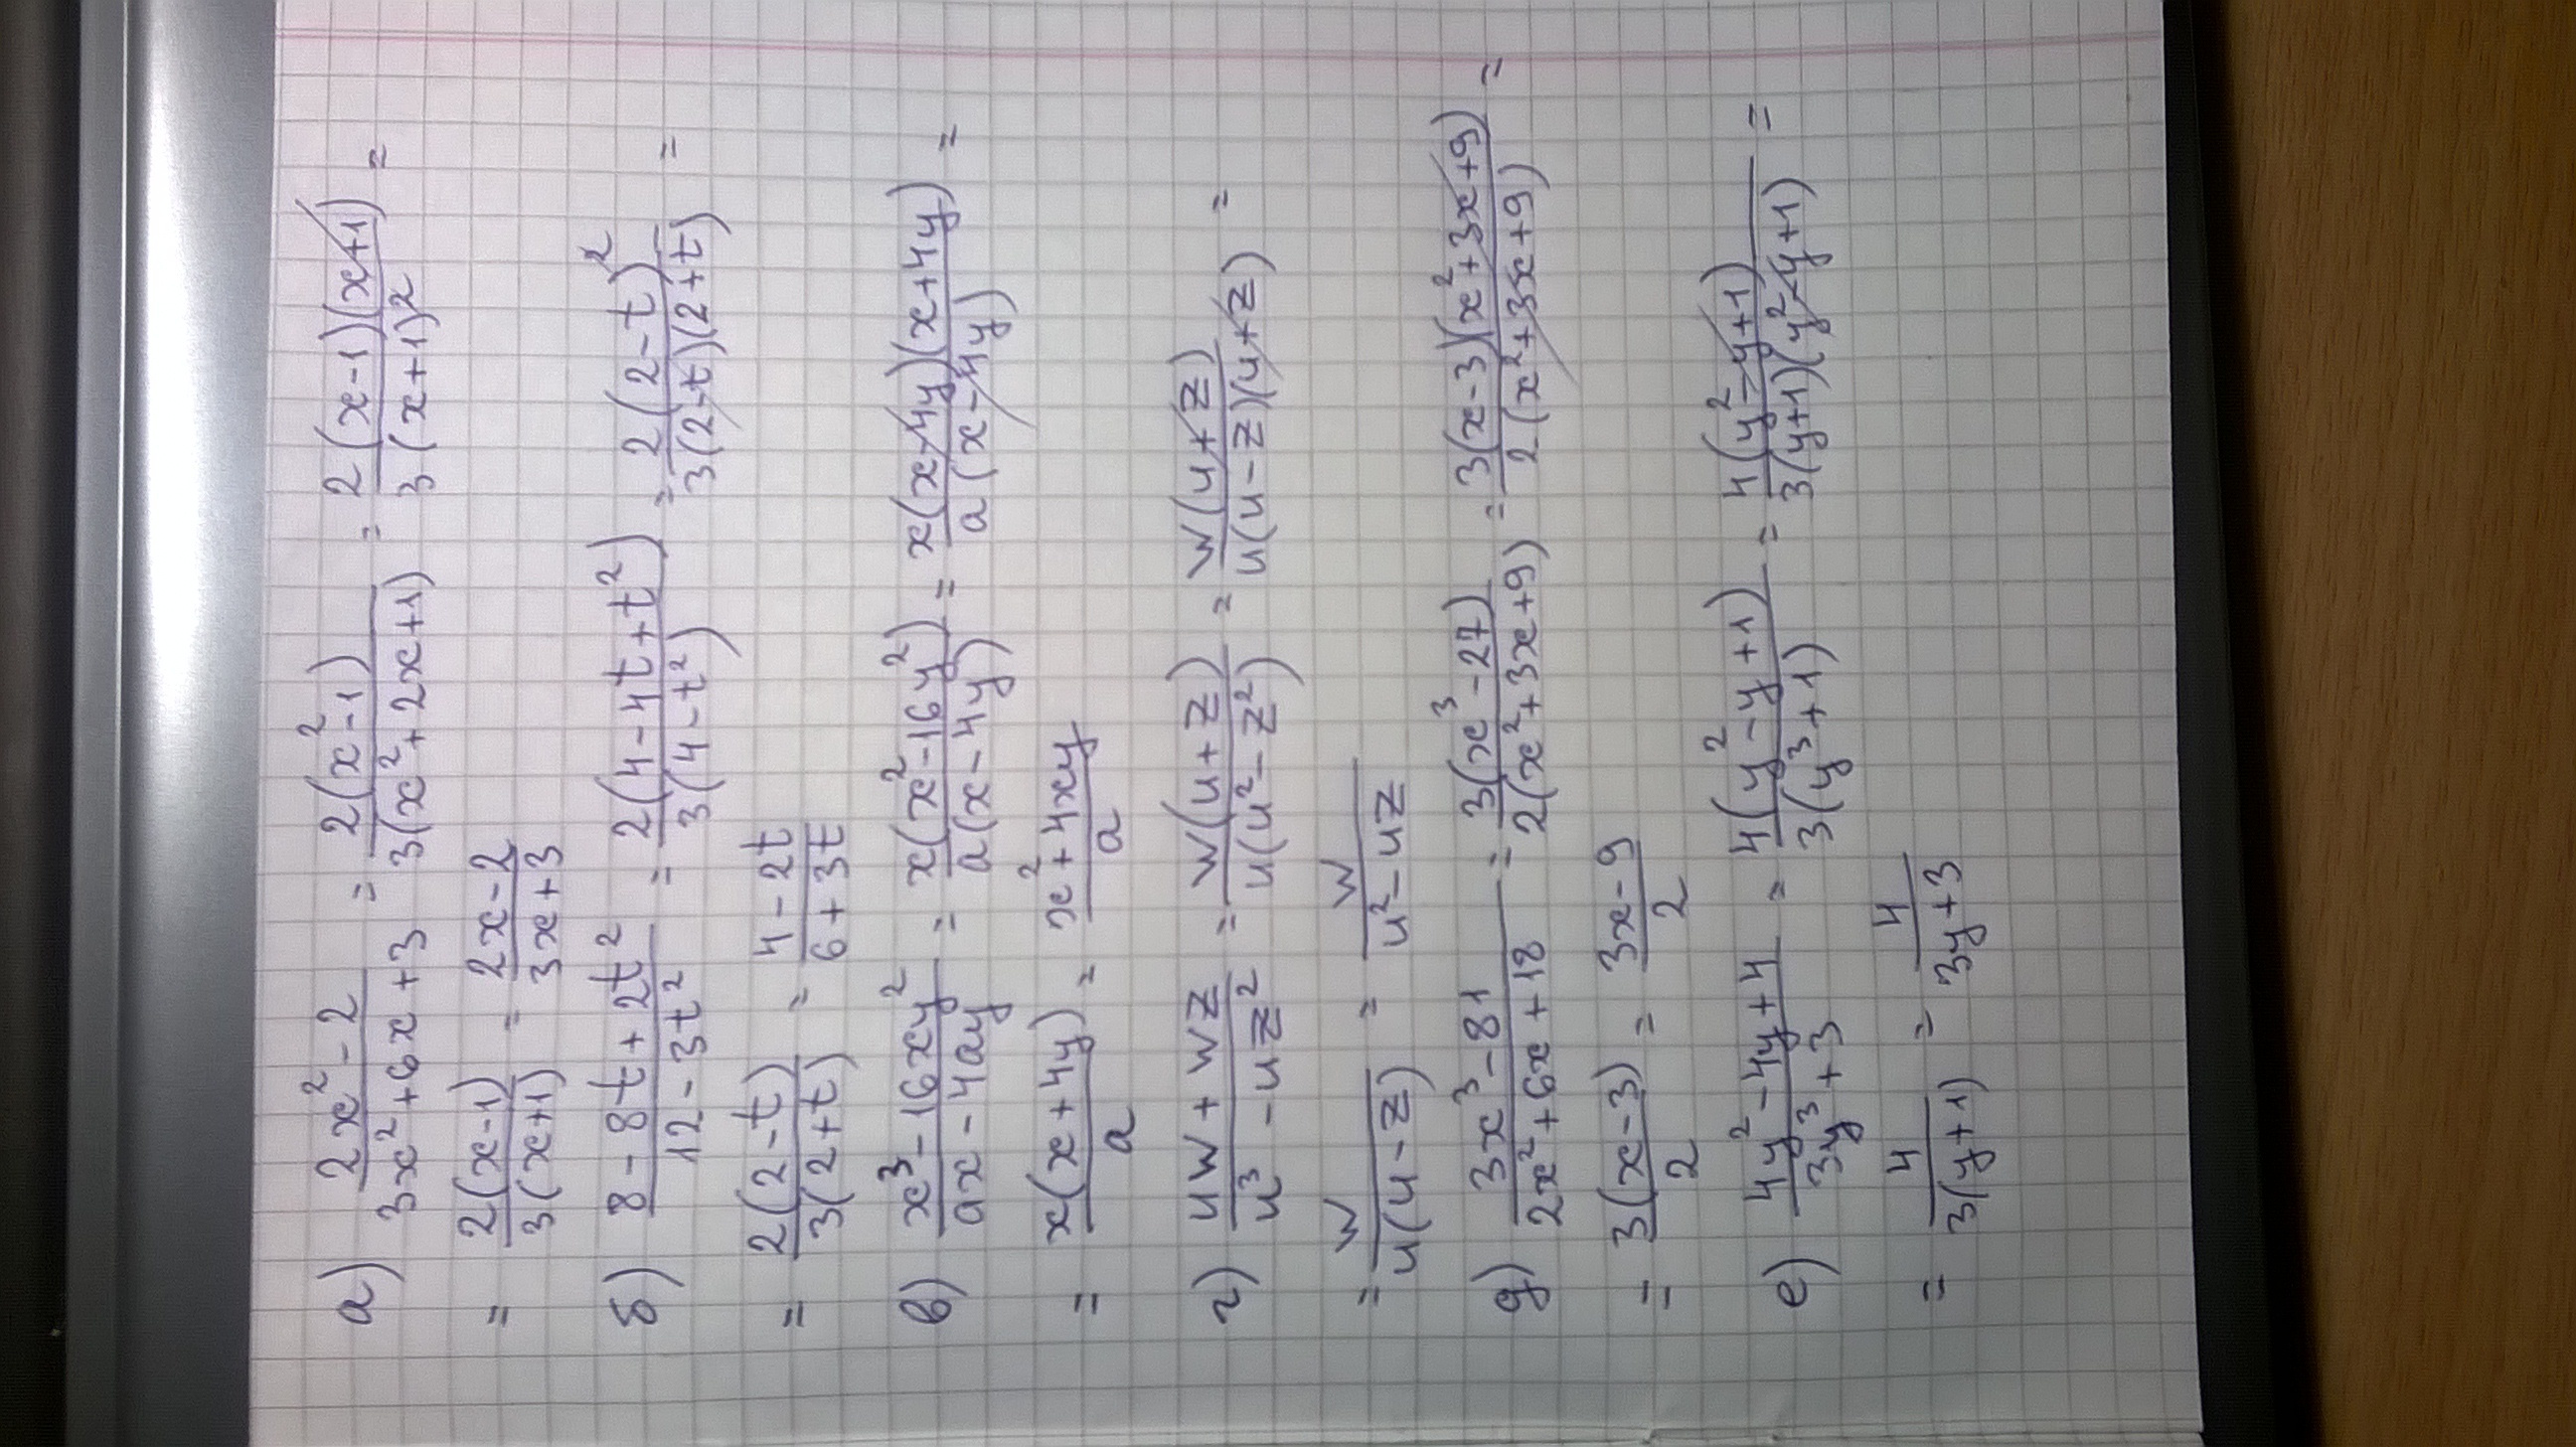 а) (2x² - 2)/(3x² + 6x + 3) = 2(x² - 1)/3(x² + 2x + 1) = 2(x - 1)(x + 1)/3(x + 1)² =
= 2(x - 1)/3(x + 1) = (2x - 2)/(3x + 3)
б) (8 - 8t + 2t²)/(12 - 3t²) = 2(4 - 4t + t²)/3(4 - t²) = 2(2 - t)²/3(2 - t)(2 + t) =
= 2(2 - t)/3(2 + t) = (4 - 2t)/(6 + 3t)
в) (x³ - 16xy²)/(ax - 4ay) = x(x² - 16y²)/a(x - 4y) = x(x - 4y)(x + 4y)/a(x - 4y) =
= x(x + 4y)/a = (x² + 4xy)/a
г) (uw + wz)/(u³ - uz²) = w(u + z)/u(u² - z²) = w(u + z)/u(u - z)(u + z) =
= w/u(u - z) = w/(u² - uz)
д) (3x³ - 81)/(2x² + 6x + 18) = 3(x³ - 27)/2(x² + 3x + 9) = 3(x - 3)(x² + 3x + 9)/2(x² + 3x + 9) =
= 3(x - 3)/2 = (3x - 9)/2
е) (4y² - 4y + 4)/(3y³ + 3) = 4(y² - y + 1)/3(y³ + 1) = 4(y² - y + 1)/3(y + 1)(y² - y + 1) =
= 4/3(y + 1) = 4/(3y + 3)